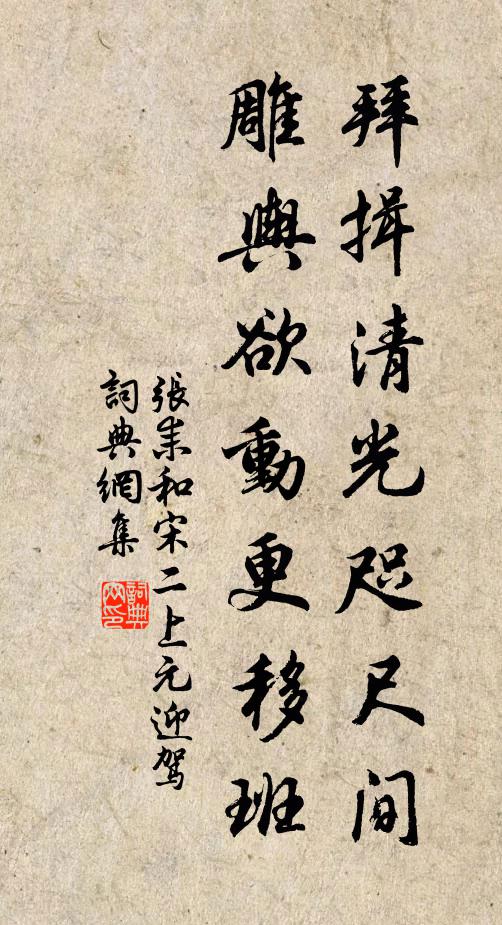 拜揖清光咫尺间
雕舆欲動更移班
張耒和宋二上元迎駕
詞典網集
詞典网印